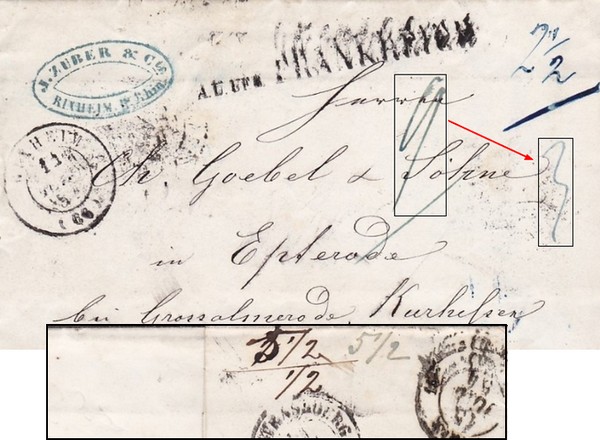 J. ZUBER & Cie
RIXHEIM, Ht Rhin
A.L. UFR. FRANKREICH
2 1/2
Herren
9
3
RIXHEIM
(66)
Ch Goebel & Söhne
in Epterode
bei Grossalmerode, Kurhessen
5 1/2 5 1/2
1/2
STRASBOURG